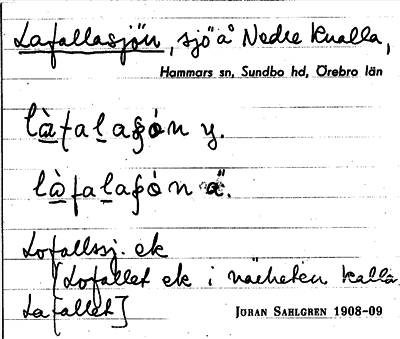 Lafallasjön, sjö å Nedre Kvalla,
Hammars sn, Sundbo hd, Örebro län
là fa l a ʂ ò n y.
là fa l a ʂ ò n ä.
Lofallssj. ek
[Lofallet ek i närheten kallas
Lafallet]
JÖRAN SAHLGREN 1908-09